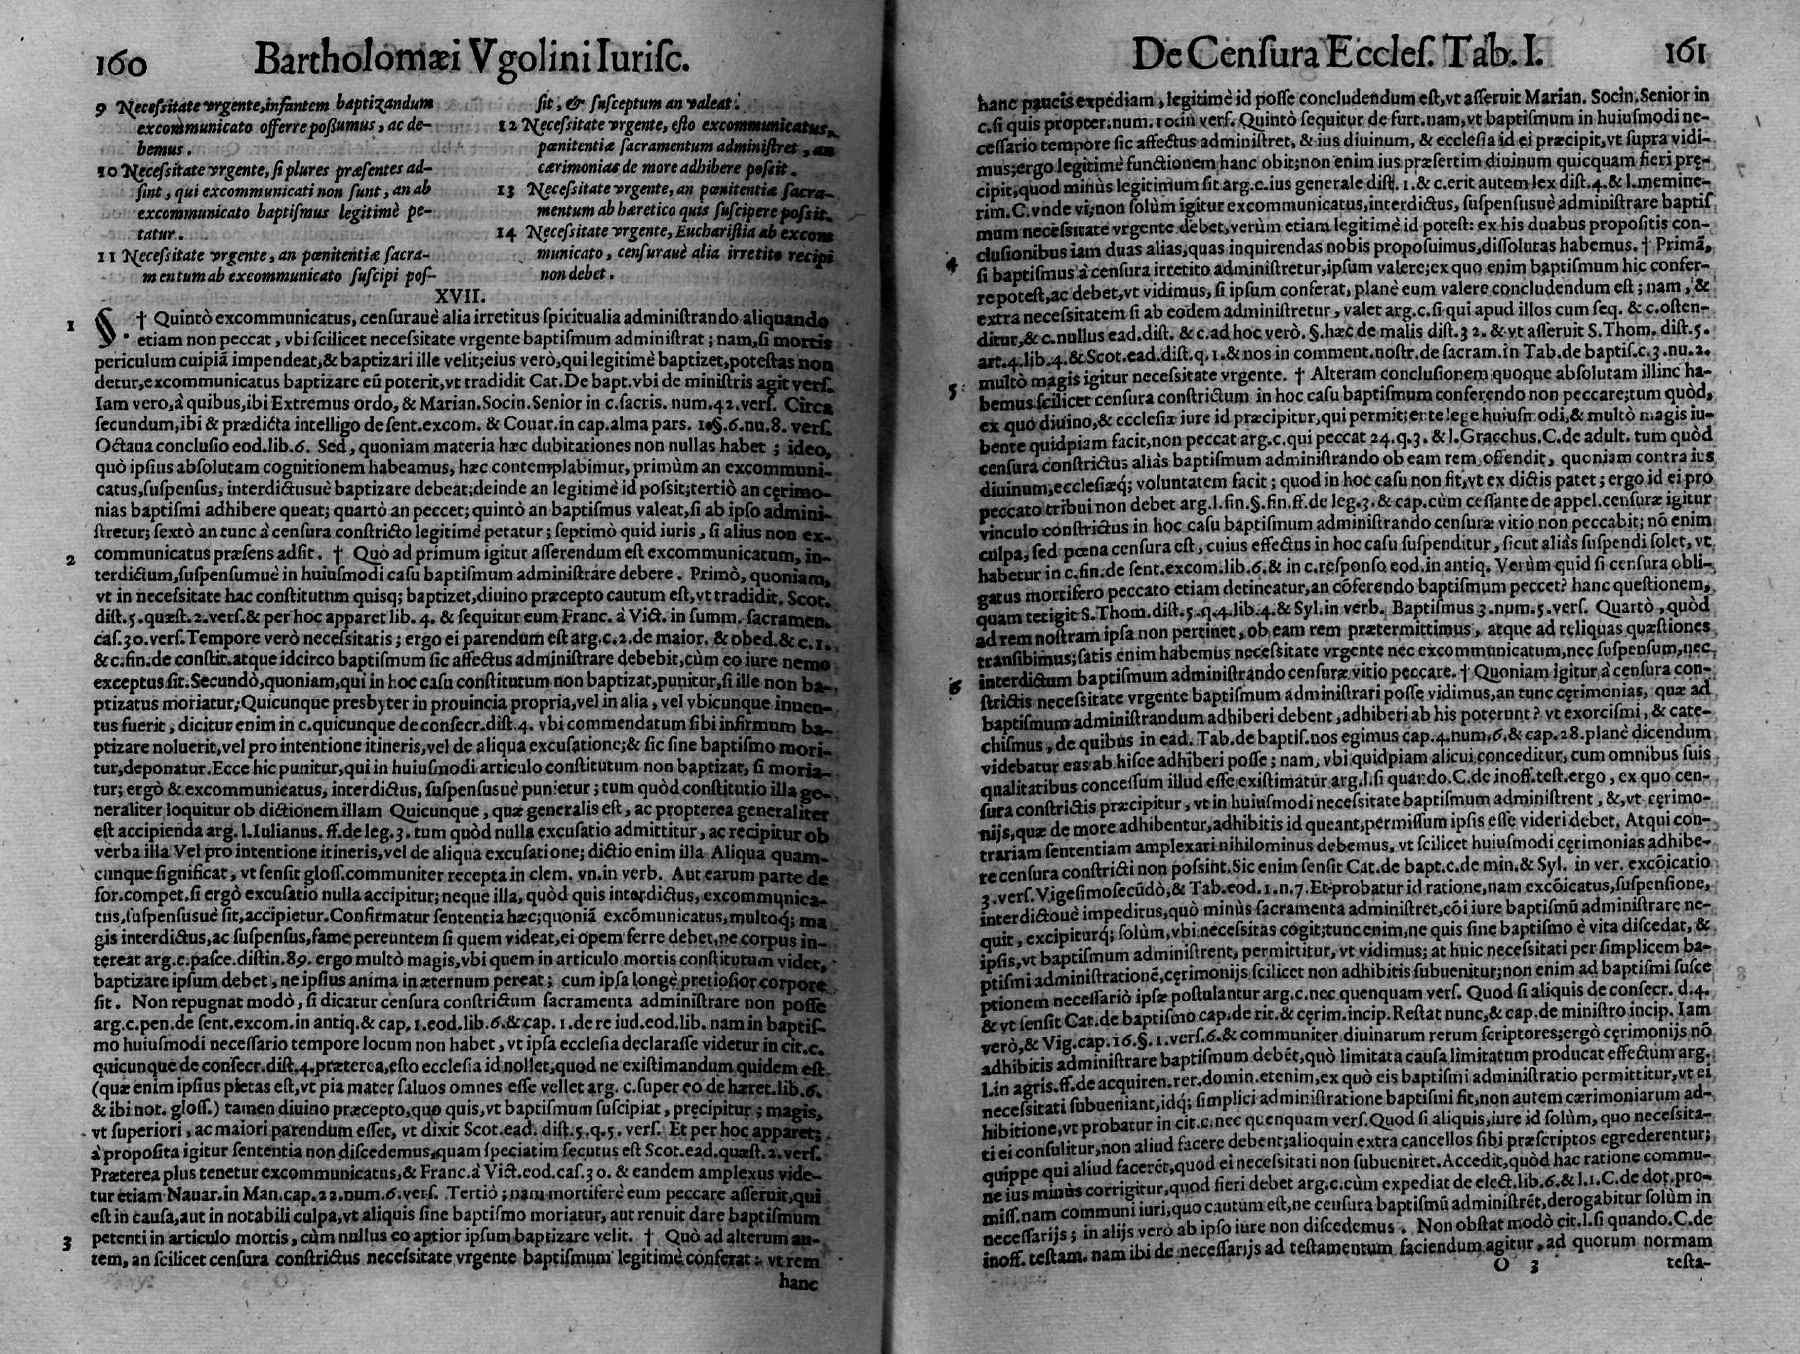 160 Bartholomæi Vgolini Iurisc.
9 Necessitate vrgente, infantem baptizandum
excommunicato offerre possumus, ac de-
bemus.
10 Necessitate vrgente, si plures præsentes ad-
sint, qui excommunicati non sunt, an ab
excommunicato baptismus legitimè pe-
tatur.
11 Necessitate vrgente, an pœnitentiæ sacra-
mentum ab excommunicato suscipi pos-
sit, & susceptum an valeat.
12 Necessitate vrgente, esto excommunicatus,
pœnitentiæ sacramentum administret, an
cærimonias de more adhibere possit.
13 Necessitate vrgente, an pœnitentiæ sacra-
mentum ab hæretico quis suscipere possit.
14 Necessitate vrgente, Eucharistia ab excom
municato, censuraue alia irretito recipi
non debet.
XVII.
1 §. † Quintò excommunicatus, censuraue alia irretitus spiritualia administrando aliquando
etiam non peccat, vbi scilicet necessitate vrgente baptismum administrat; nam, si mortis
periculum cuipiã impendeat, & baptizari ille velit; eius verò, qui legitimè baptizet, potestas non
detur, excommunicatus baptizare eũ poterit, vt tradidit Cat. De bapt. vbi de ministris agit vers.
Iam vero, à quibus, ibi Extremus ordo, & Marian. Socin. Senior in c. sacris. num. 42. vers. Circa
secundum, ibi & prædicta intelligo de sent. excom. & Couar. in cap. alma pars. 1. §. 6. nu. 8. vers.
Octaua conclusio eod. lib. 6. Sed, quoniam materia hæc dubitationes non nullas habet; ideo,
quò ipsius absolutam cognitionem habeamus, hæc contemplabimur, primùm an excommuni-
catus, suspensus, interdictusuè baptizare debeat; deinde an legitimè id possit; tertiò an cęrimo-
nias baptismi adhibere queat; quartò an peccet; quintò an baptismus valeat, si ab ipso admini-
stretur; sextò an tunc à censura constricto legitimè petatur; septimò quid iuris, si alius non ex-
2 communicatus præsens adsit. † Quò ad primum igitur asserendum est excommunicatum, in-
terdictum, suspensumuè in huiusmodi casu baptismum administrare debere. Primò, quoniam,
vt in necessitate hac constitutum quisq; baptizet, diuino præcepto cautum est, vt tradidit. Scot.
dist. 5. quæst. 2. vers. & per hoc apparet lib. 4. & sequitur eum Franc. à Vict. in summ. sacramen.
cas. 30. vers. Tempore verò necessitatis; ergo ei parendum est arg. c. 2. de maior. & obed. & c. 1.
& c. fin. de constit. atque idcirco baptismum sic affectus administrare debebit, cùm eo iure nemo
exceptus sit. Secundò, quoniam, qui in hoc casu constitutum non baptizat, punitur, si ille non ba-
ptizatus moriatur; Quicunque presbyter in prouincia propria, vel in alia, vel vbicunque inuen-
tus fuerit, dicitur enim in c. quicunque de consecr. dist. 4. vbi commendatum sibi infirmum ba-
ptizare noluerit, vel pro intentione itineris, vel de aliqua excusatione; & sic sine baptismo mori-
tur, deponatur. Ecce hic punitur, qui in huiusmodi articulo constitutum non baptizat, si moria-
tur; ergò & excommunicatus, interdictus, suspensusuè punietur; tum quòd constitutio illa ge-
neraliter loquitur ob dictionem illam Quicunque, quæ generalis est, ac propterea generaliter
est accipienda arg. l. Iulianus. ff. de leg. 3. tum quòd nulla excusatio admittitur, ac recipitur ob
verba illa Vel pro intentione itineris, vel de aliqua excusatione; dictio enim illa Aliqua quam-
cunque significat, vt sensit gloss. communiter recepta in clem. vn. in verb. Aut earum parte de
for. compet. si ergò excusatio nulla accipitur; neque illa, quòd quis interdictus, excommunica-
tus, suspensusuè sit, accipietur. Confirmatur sententia hæc; quoniã excõmunicatus, multoq́; ma
gis interdictus, ac suspensus, fame pereuntem si quem videat, ei opem ferre debet, ne corpus in-
tereat arg. c. pasce. distin. 89. ergo multò magis, vbi quem in articulo mortis constitutum videt,
baptizare ipsum debet, ne ipsius anima in æternum pereat; cum ipsa longè pretiosior corpore
sit. Non repugnat modò, si dicatur censura constrictum sacramenta administrare non posse
arg. c. pen. de sent. excom. in antiq. & cap. 1. eod. lib. 6. & cap. 1. de re iud. eod. lib. nam in baptis-
mo huiusmodi necessario tempore locum non habet, vt ipsa ecclesia declarasse videtur in cit. c.
quicunque de consecr. dist. 4. præterea, esto ecclesia id nollet, quod ne existimandum quidem est
(quæ enim ipsius pietas est, vt pia mater saluos omnes esse vellet arg. c. super eo de hæret. lib. 6.
& ibi not. gloss.) tamen diuino præcepto, quo quis, vt baptismum suscipiat, pręcipitur; magis,
vt superiori, ac maiori parendum esset, vt dixit Scot. ead. dist. 5. q. 5. vers. Et per hoc apparet;
à proposita igitur sententia non discedemus, quam speciatim secutus est Scot. ead. quæst. 2. vers.
Præterea plus tenetur excommunicatus, & Franc. à Vict. eod. cas. 30. & eandem amplexus vide-
tur etiam Nauar. in Man. cap. 22. num. 6. vers. Tertiò; nam mortiferè eum peccare asseruit, qui
est in causa, aut in notabili culpa, vt aliquis sine baptismo moriatur, aut renuit dare baptismum
3 petenti in articulo mortis, cùm nullus eo aptior ipsum baptizare velit. † Quò ad alterum au-
tem, an scilicet censura constrictus necessitate vrgente baptismum legitimè conferat: vt rem
hanc
De Censura Eccles. Tab. I. 161
hanc paucis expediam, legitimè id posse concludendum est, vt asseruit Marian. Socin. Senior in
c. si quis propter. num. 10. in vers. Quintò sequitur de furt. nam, vt baptismum in huiusmodi ne-
cessario tempore sic affectus administret, & ius diuinum, & ecclesia id ei præcipit, vt supra vidi-
mus; ergo legitimè functionem hanc obit; non enim ius præsertim diuinum quicquam fieri prę-
cipit, quod minùs legitimum sit arg. c. ius generale dist. 1. & c. erit autem lex dist. 4. & l. memine-
rim. C. vnde vi; non solùm igitur excommunicatus, interdictus, suspensusuè administrare baptis
mum necessitate vrgente debet, verùm etiam legitimè id potest: ex his duabus propositis con-
clusionibus iam duas alias, quas inquirendas nobis proposuimus, dissolutas habemus. † Primã,
4 si baptismus à censura irretito administretur, ipsum valere; ex quo enim baptismum hic confer-
re potest, ac debet, vt vidimus, si ipsum conferat, planè eum valere concludendum est; nam, &
extra necessitatem si ab eodem administretur, valet arg. c. si qui apud illos cum seq. & c. osten-
ditur, & c. nullus ead. dist. & c. ad hoc verò. §. hæc de malis dist. 32. & vt asseruit S. Thom. dist. 5.
art. 4. lib. 4. & Scot. ead. dist. q. 1. & nos in comment. nostr. de sacram. in Tab. de baptis. c. 3. nu. 2.
5 multò magis igitur necessitate vrgente. † Alteram conclusionem quoque absolutam illinc ha-
bemus scilicet censura constrictum in hoc casu baptismum conferendo non peccare; tum quòd,
ex quo diuino, & ecclesiæ iure id præcipitur, qui permittente lege huiusmodi, & multò magis iu-
bente quidpiam facit, non peccat arg. c. qui peccat 24. q. 3. & l. Gracchus. C. de adult. tum quòd
censura constrictus aliàs baptismum administrando ob eam rem offendit, quoniam contra ius
diuinum, ecclesiæq́; voluntatem facit; quod in hoc casu non fit, vt ex dictis patet; ergo id ei pro
peccato tribui non debet arg. l. fin. §. fin. ff. de leg. 3. & cap. cùm cessante de appel. censuræ igitur
vinculo constrictus in hoc casu baptismum administrando censuræ vitio non peccabit; nõ enim
culpa, sed pœna censura est, cuius effectus in hoc casu suspenditur, sicut aliàs suspendi solet, vt
habetur in c. fin. de sent. excom. lib. 6. & in c. responso eod. in antiq. Verùm quid si censura obli-
gatus mortifero peccato etiam detineatur, an cõferendo baptismum peccet? hanc questionem,
quam tetigit S. Thom. dist. 5. q. 4. lib. 4. & Syl. in verb. Baptismus 3. num. 5. vers. Quartò, quòd
ad rem nostram ipsa non pertinet, ob eam rem prætermittimus, atque ad reliquas quæstiones
transibimus; satis enim habemus necessitate vrgente nec excommunicatum, nec suspensum, nec
6 interdictum baptismum administrando censuræ vitio peccare. † Quoniam igitur à censura con-
strictis necessitate vrgente baptismum administrari posse vidimus, an tunc cęrimonias, quæ ad
baptismum administrandum adhiberi debent, adhiberi ab his poterunt? vt exorcismi, & cate-
chismus, de quibus in ead. Tab. de baptis. nos egimus cap. 4. num. 6. & cap. 28. planè dicendum
videbatur eas ab hisce adhiberi posse; nam, vbi quidpiam alicui conceditur, cum omnibus suis
qualitatibus concessum illud esse existimatur arg. l. si quando. C. de inoff. test. ergo, ex quo cen-
sura constrictis præcipitur, vt in huiusmodi necessitate baptismum administrent, &, vt cęrimo-
nijs, quæ de more adhibentur, adhibitis id queant, permissum ipsis esse videri debet. Atqui con-
trariam sententiam amplexari nihilominus debemus, vt scilicet huiusmodi cęrimonias adhibe-
re censura constricti non possint. Sic enim sensit Cat. de bapt. c. de min. & Syl. in ver. excõicatio
3. vers. Vigesimosecũdò, & Tab. eod. 1. n. 7. Et probatur id ratione, nam excõicatus, suspensione,
interdictouè impeditus, quò minùs sacramenta administret, cõi iure baptismũ administrare ne-
quit, excipiturq́; solùm, vbi necessitas cogit; tunc enim, ne quis sine baptismo è vita discedat, &
ipsis, vt baptismum administrent, permittitur, vt vidimus; at huic necessitati per simplicem ba-
ptismi administrationẽ, cęrimonijs scilicet non adhibitis subuenitur; non enim ad baptismi susce
ptionem necessariò ipsæ postulantur arg. c. nec quenquam vers. Quod si aliquis de consecr. d. 4.
& vt sensit Cat. de baptismo cap. de rit. & cęrim. incip. Restat nunc, & cap. de ministro incip. Iam
verò, & Vig. cap. 16. §. 1. vers. 6. & communiter diuinarum rerum scriptores; ergò cęrimonijs nõ
adhibitis administrare baptismum debẽt, quò limitata causa limitatum producat effectum arg.
l. in agris. ff. de acquiren. rer. domin. etenim, ex quò eis baptismi administratio permittitur, vt ei
necessitati subueniant, idq́; simplici administratione baptismi fit, non autem cærimoniarum ad-
hibitione, vt probatur in cit. c. nec quenquam vers. Quod si aliquis, iure id solùm, quo necessita-
ti ei consulitur, non aliud facere debent; alioquin extra cancellos sibi præscriptos egrederentur;
quippe qui aliud facerẽt, quod ei necessitati non subueniret. Accedit, quòd hac ratione commu-
ne ius minùs corrigitur, quod fieri debet arg. c. cùm expediat de elect. lib. 6. & l. 1. C. de dot. pro-
miss. nam communi iuri, quo cautum est, ne censura baptismũ administrẽt, derogabitur solùm in
necessarijs; in alijs verò ab ipso iure non discedemus. Non obstat modò cit. l. si quando. C. de
inoff. testam. nam ibi de necessarijs ad testamentum faciendum agitur, ad quorum normam
O 3 testa-